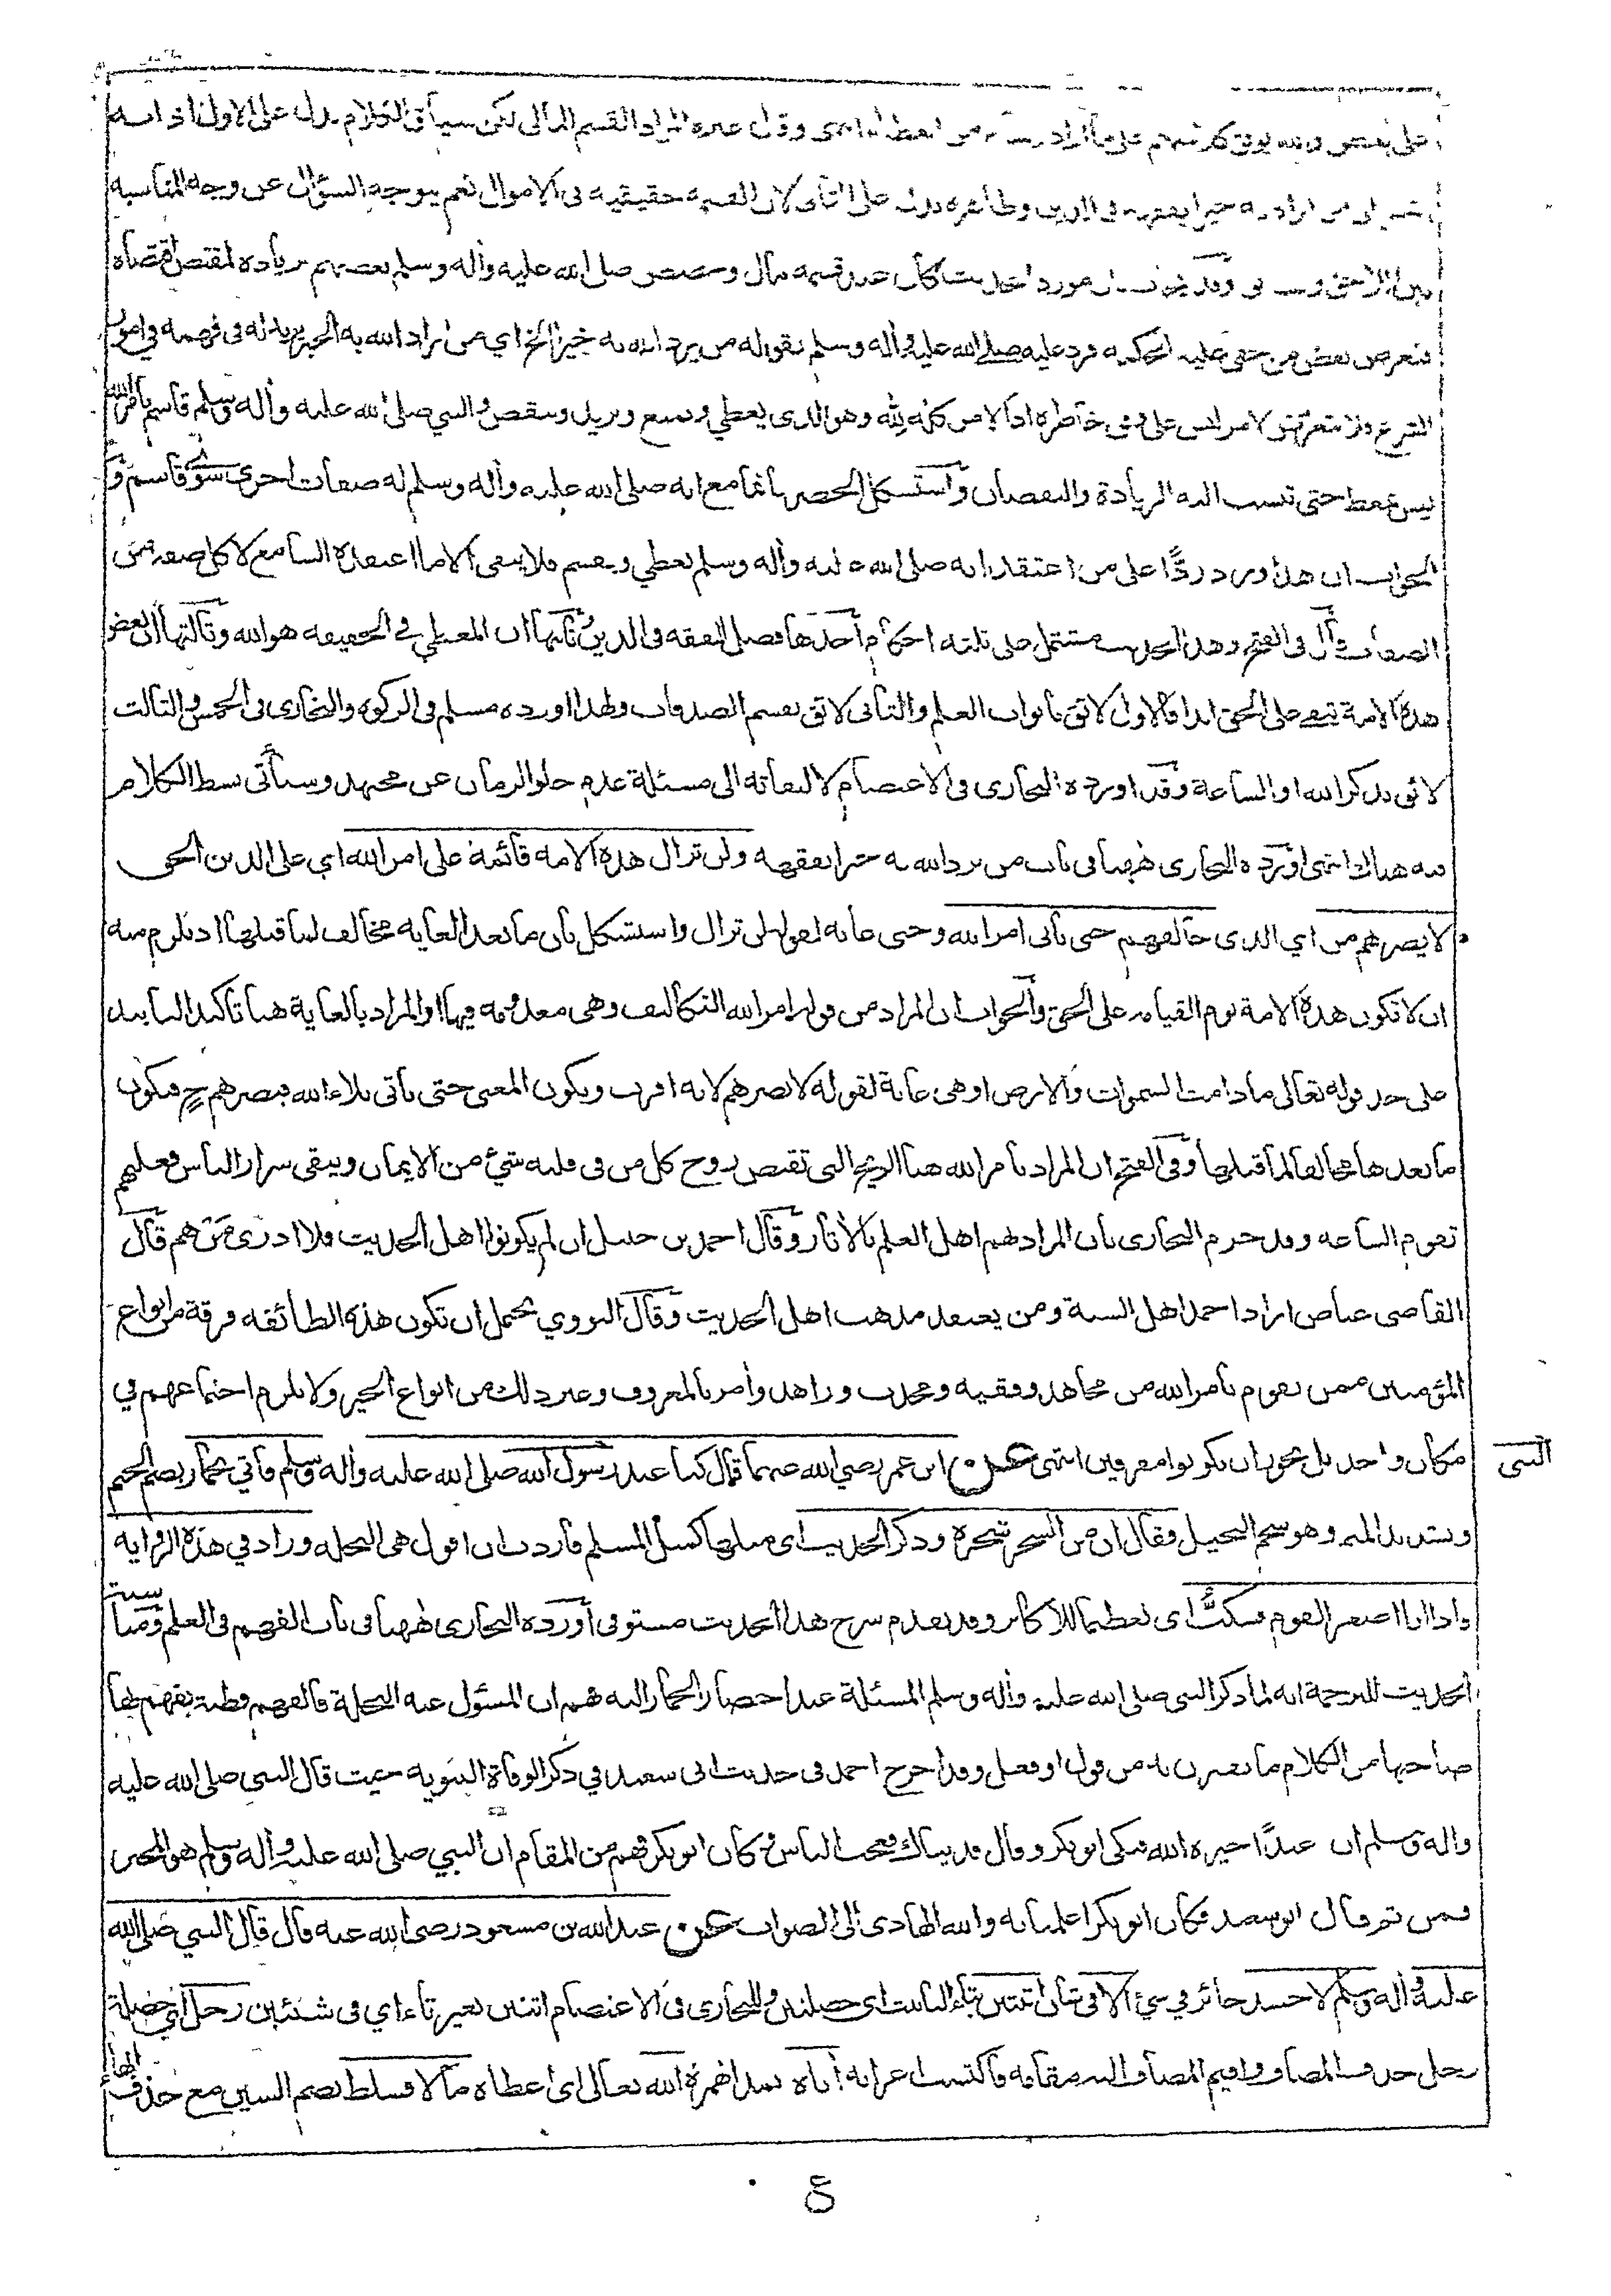 على بعض والله يوفق كل منهم على ما أراد من العطاء انتهى وقال غيره المراد القسم المالي لكن سياق الكلام يدل على الاول اذ انه
من اراد به خيرا يفقهه في الدين وظاهره يدل على الثاني لان القسمة حقيقية في الاموال نعم يتوجه السؤال عن وجه المناسبة
بين اللاحق والسابق وقد يجاب بان مورد الحديث كان عند قسمة مال وخصص صلى الله عليه وأله وسلم بعضهم بزيادة لمقتض اقتضاه
فتعرض بعض من خفي عليه الحكمة فرد عليه صلى الله عليه وأله وسلم بقوله من يرد الله به خيرا الخ اي من اراد الله به الخير يزيد له في فهمه في امور
الشرع فلا يتعرض لامر ليس على وفق خاطره اذ الامر كله لله وهو الذي يعطي ويمنع ويزيد وينقص والنبي صلى الله عليه وأله وسلم قاسم بامر الله
ليس بمعط حتى تنسب اليه الزيادة والنقصان وأستشكل الحصر بانما مع انه صلى الله عليه وأله وسلم له صفات اخرى سوى قاسم و
الجواب ان هذا ورد ردًّا على من اعتقد انه صلى الله عليه وأله وسلم يعطي ويقسم فلا ينفي الا ما اعتقده السامع لا كل صفة من
الصفات قال في الفتح وهذا الحديث مشتمل على ثلثه احكام أحدها فضل التفقه في الدين وثانيها ان المعطي في الحقيقه هو الله وثالثها ان بعض
هذه الامة تبقى على الحق ابدا فالاول لائق بابواب العلم والثاني لائق بقسم الصدقات ولهذا اورده مسلم في الزكوة والبخارى في الخمس والثالث
لائق بذكر اشراط الساعة وقد اورده البخارى في الاعتصام لالتفاته الى مسئلة عدم خلو الزمان عن مجتهد وسيأتى بسط الكلام
فيه هناك انتهى أورده البخارى ههنا في باب من يرد الله به خيرا يفقهه ولن تزال هذه الامة قائمة على امر الله اي على الدين الحق
لا يضرهم من اي الذي خالفهم حتى يأتى امر الله وحتى غاية لقوله لن تزال واستشكل بان ما بعد الغاية مخالف لما قبلها اذ يلزم منه
ان لا تكون هذه الامة يوم القيامة على الحق وألجواب ان المراد من قوله امر الله التكاليف وهى معدومة فيها او المراد بالغاية هنا تاكيد التابيد
على حد قوله تعالى ما دامت السموات والارض او هى غاية لقوله لا يضرهم لانه اقرب ويكون المعنى حتى يأتى بلاء الله فيضرهم ح فيكون
ما بعدها مخالفا لما قبلها وفى الفتح ان المراد بامر الله هنا الريح التى تقبض روح كل من فى قلبه شئ من الايمان ويبقى شرار الناس فعليهم
تقوم الساعة وقد جزم البخارى بان المراد بهم اهل العلم بالأثار وقال احمد بن حنبل ان لم يكونوا اهل الحديث فلا ادرى من هم قال
القاضى عياض اراد احمد اهل السنة ومن يعتقد مذهب اهل الحديث وقال النووي يحتمل ان تكون هذه الطائفه فرقة من انواع
المؤمنين ممن يقوم بامر الله من مجاهد وفقيه ومحدث وزاهد وأمر بالمعروف وغير ذلك من انواع الخير ولا يلزم اجتماعهم في
مكان واحد بل يجوز ان يكونوا مفرقين انتهى عن ابن عمر رضي الله عنهما قال كنا عند رسول الله صلى الله عليه وأله وسلم فأتي بجمار بضم الجيم
النبى
وتشديد الميم وهو شحم النخيل فقال ان من الشجر شجرة وذكر الحديث اى مثلها كمثل المسلم فأردت ان اقول هى النخلة وزاد في هذه الرواية
واذا انا اصغر القوم فسكتُّ اى تعظيما للاكابر وقد تقدم شرح هذا الحديث مستوفى أورده البخارى ههنا فى باب الفهم فى العلم ومناسبة
الحديث للترجمة انه لما ذكر النبى صلى الله عليه وأله وسلم المسئلة عند احضار الجمار اليه فهم ان المسئول عنه النخلة فالفهم فطنة يفهم بها
صاحبها من الكلام ما يقترن به من قول او فعل وقد اخرج احمد فى حديث ابى سعيد في ذكر الوفاة النبوية حيث قال النبى صلى الله عليه
واله وسلم ان عبدًا خيره الله فبكى ابو بكر وقال فديناك فعجب الناس فكان ابو بكر فهم من المقام ان النبي صلى الله عليه وأله وسلم هو المخير
فمن ثم قال ابو سعيد فكان ابو بكر اعلمنا به والله الهادى الى الصواب عن عبد الله بن مسعود رضى الله عنه قال قال النبي صلى الله
عليه وأله وسلم لا حسد جائز في شئ الا في شأن اثنتين بتاء التانيث اى خصلتين وللبخارى فى الاعتصام اثنين بغير تاء اي فى شيئين رجل اي خصلة
رجل حذف المضاف واقيم المضاف اليه مقامه فاكتسب اعرابه أتاه بمد الهمزة الله تعالى اى اعطاه مالا فسلط بضم السين مع حذف الهاء
ع